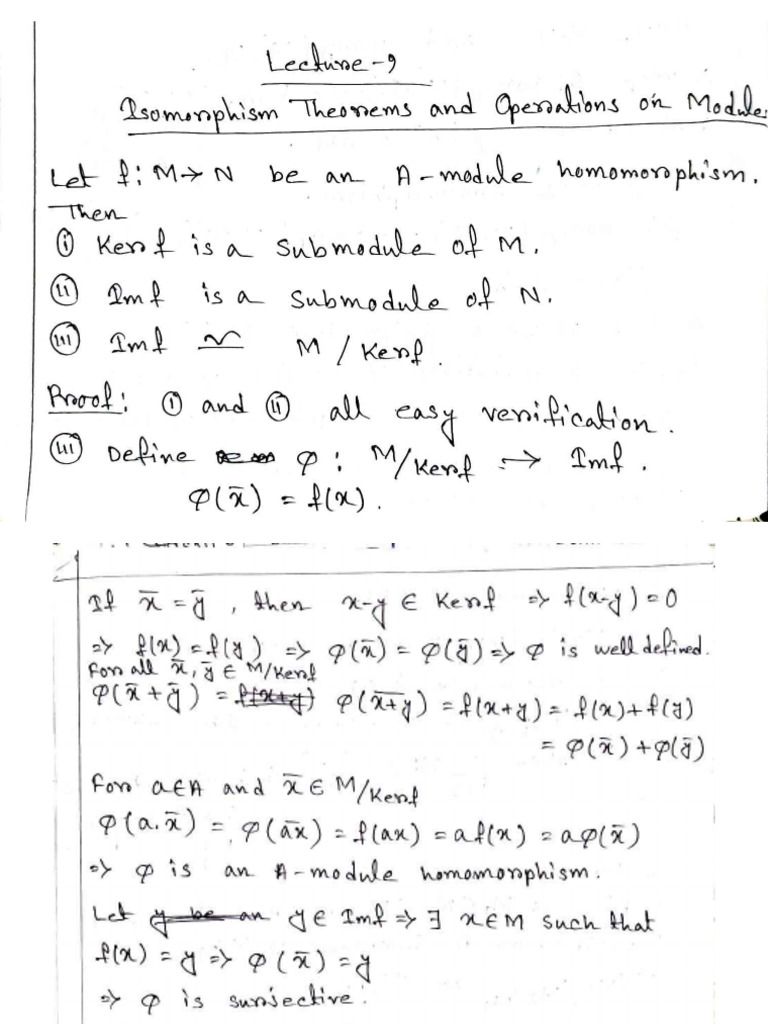 Lecture-9
Isomorphism Theorems and Operations on Module
Let f: M→N be an A-module homomorphism.
Then
(i) Kerf is a submodule of M.
(ii) Imf is a submodule of N.
(iii) Imf ≃ M/Kerf.
Proof: (i) and (ii) all easy verification.
(iii) Define φ: M/Kerf → Imf.
φ(x̄) = f(x).
If x̄ = ȳ, then x-y ∈ Kerf ⇒ f(x-y)=0
⇒ f(x)=f(y) ⇒ φ(x̄) = φ(ȳ) ⇒ φ is well defined.
For all x̄, ȳ ∈ M/Kerf
φ(x̄+ȳ) = f(x+y) φ(x̅+̅y̅) = f(x+y) = f(x)+f(y)
= φ(x̄)+φ(ȳ)
For a∈A and x̄ ∈ M/Kerf
φ(a.x̄) = φ(a̅x̅) = f(ax) = af(x) = aφ(x̄)
⇒ φ is an A-module homomorphism.
Let y be an y ∈ Imf ⇒ ∃ x∈M such that
f(x) = y ⇒ φ(x̄) = y
⇒ φ is surjective.